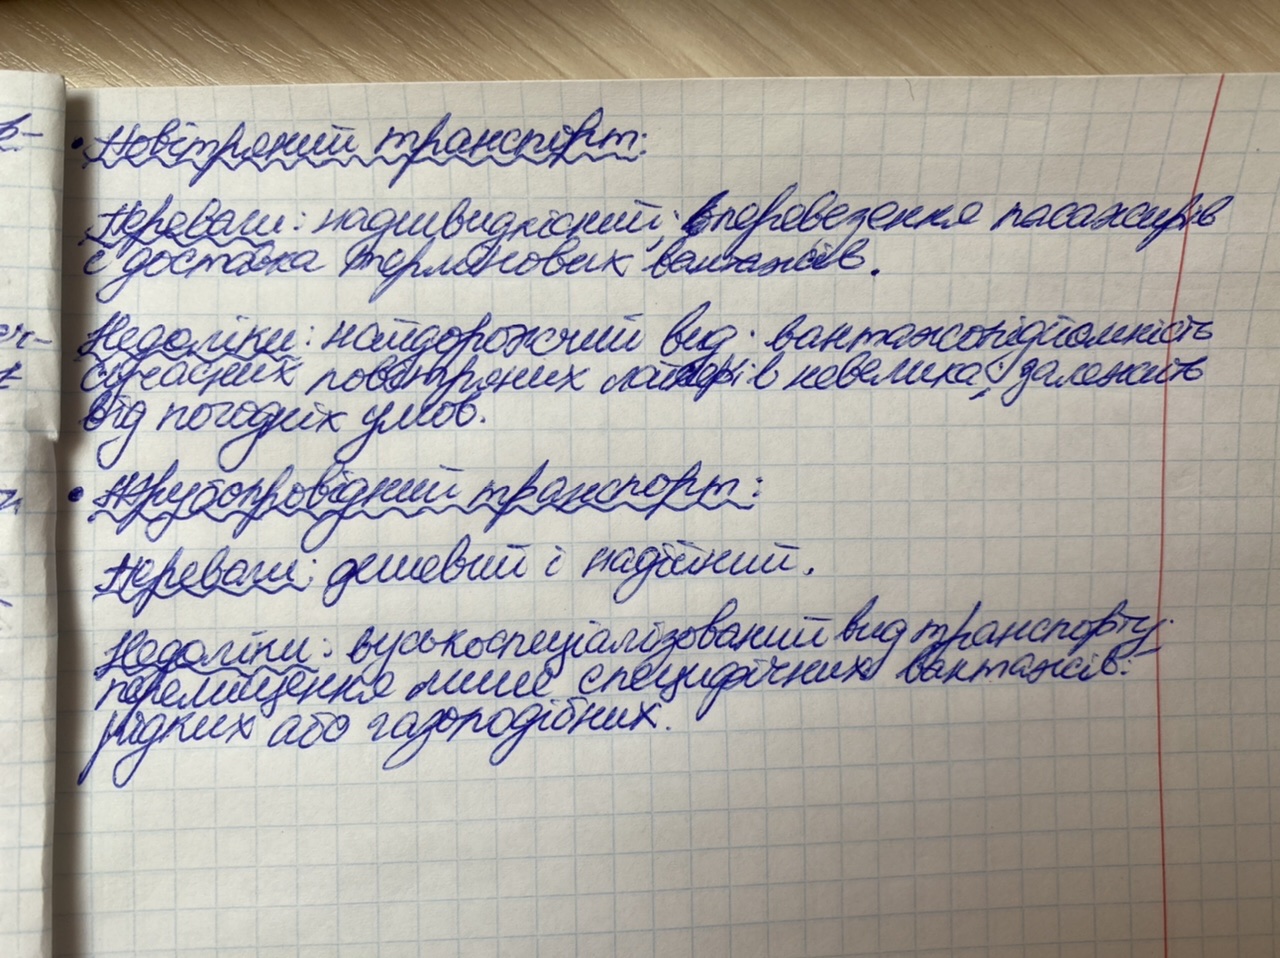 • Повітряний транспорт:
Переваги: надшвидкісний; перевезення пасажирів
і доставка термінових вантажів.
Недоліки: найдорожчий вид; вантажопідйомність
сучасних повітряних лайнерів невелика; залежить
від погодніх умов.
• Трубопровідний транспорт:
Переваги: дешевий і надійний.
Недоліки: вузькоспеціалізований вид транспорту;
переміщення лише специфічних вантажів:
рідких або газоподібних.